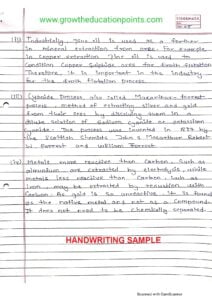 www.growtheducationpoints.com
(ii) Industrially, Pine oil is used as a frother
in mineral extraction from ores. For example,
in Copper extraction Pine oil is used to
condition Copper sulphide ores for froth flotation
Therefore, it is important in the industry
for the froth flotation process.
(iii) Cyanide Process, also called Macarthur-forrest
process, method of extracting silver and gold
from their ores by dissolving them in a
dilute solution of sodium cyanide or potassium
cyanide. The process was invented in 1887 by
the Scottish Chemists John S Macarthur, Robert
W. Forrest and William Forrest.
(iv) Metals more reactive than carbon, such as
aluminium, are extracted by electrolysis, while
metals less reactive than carbon, such as
iron, may be extracted by reduction with
carbon. As gold is so unreactive, it is found
as the native metal and not as a compound.
It does not need to be chemically separated.
HANDWRITING SAMPLE
Scanned with CamScanner